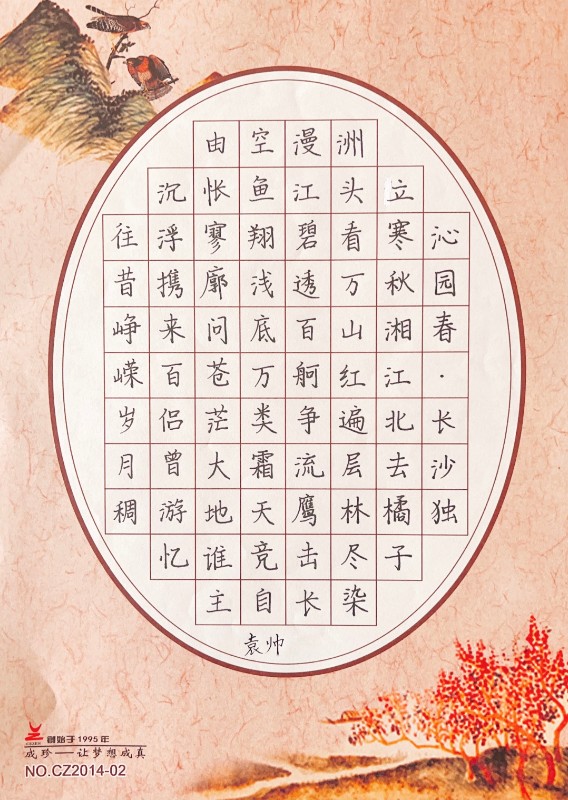 沁园春·长沙独
立寒秋湘江北去橘子
洲头看万山红遍层林尽染
漫江碧透百舸争流鹰击长
空鱼翔浅底万类霜天竞自
由怅寥廓问苍茫大地谁主
沉浮携来百侣曾游忆
往昔峥嵘岁月稠
袁帅
创始于1995年
成珍——让梦想成真
NO.CZ2014-02